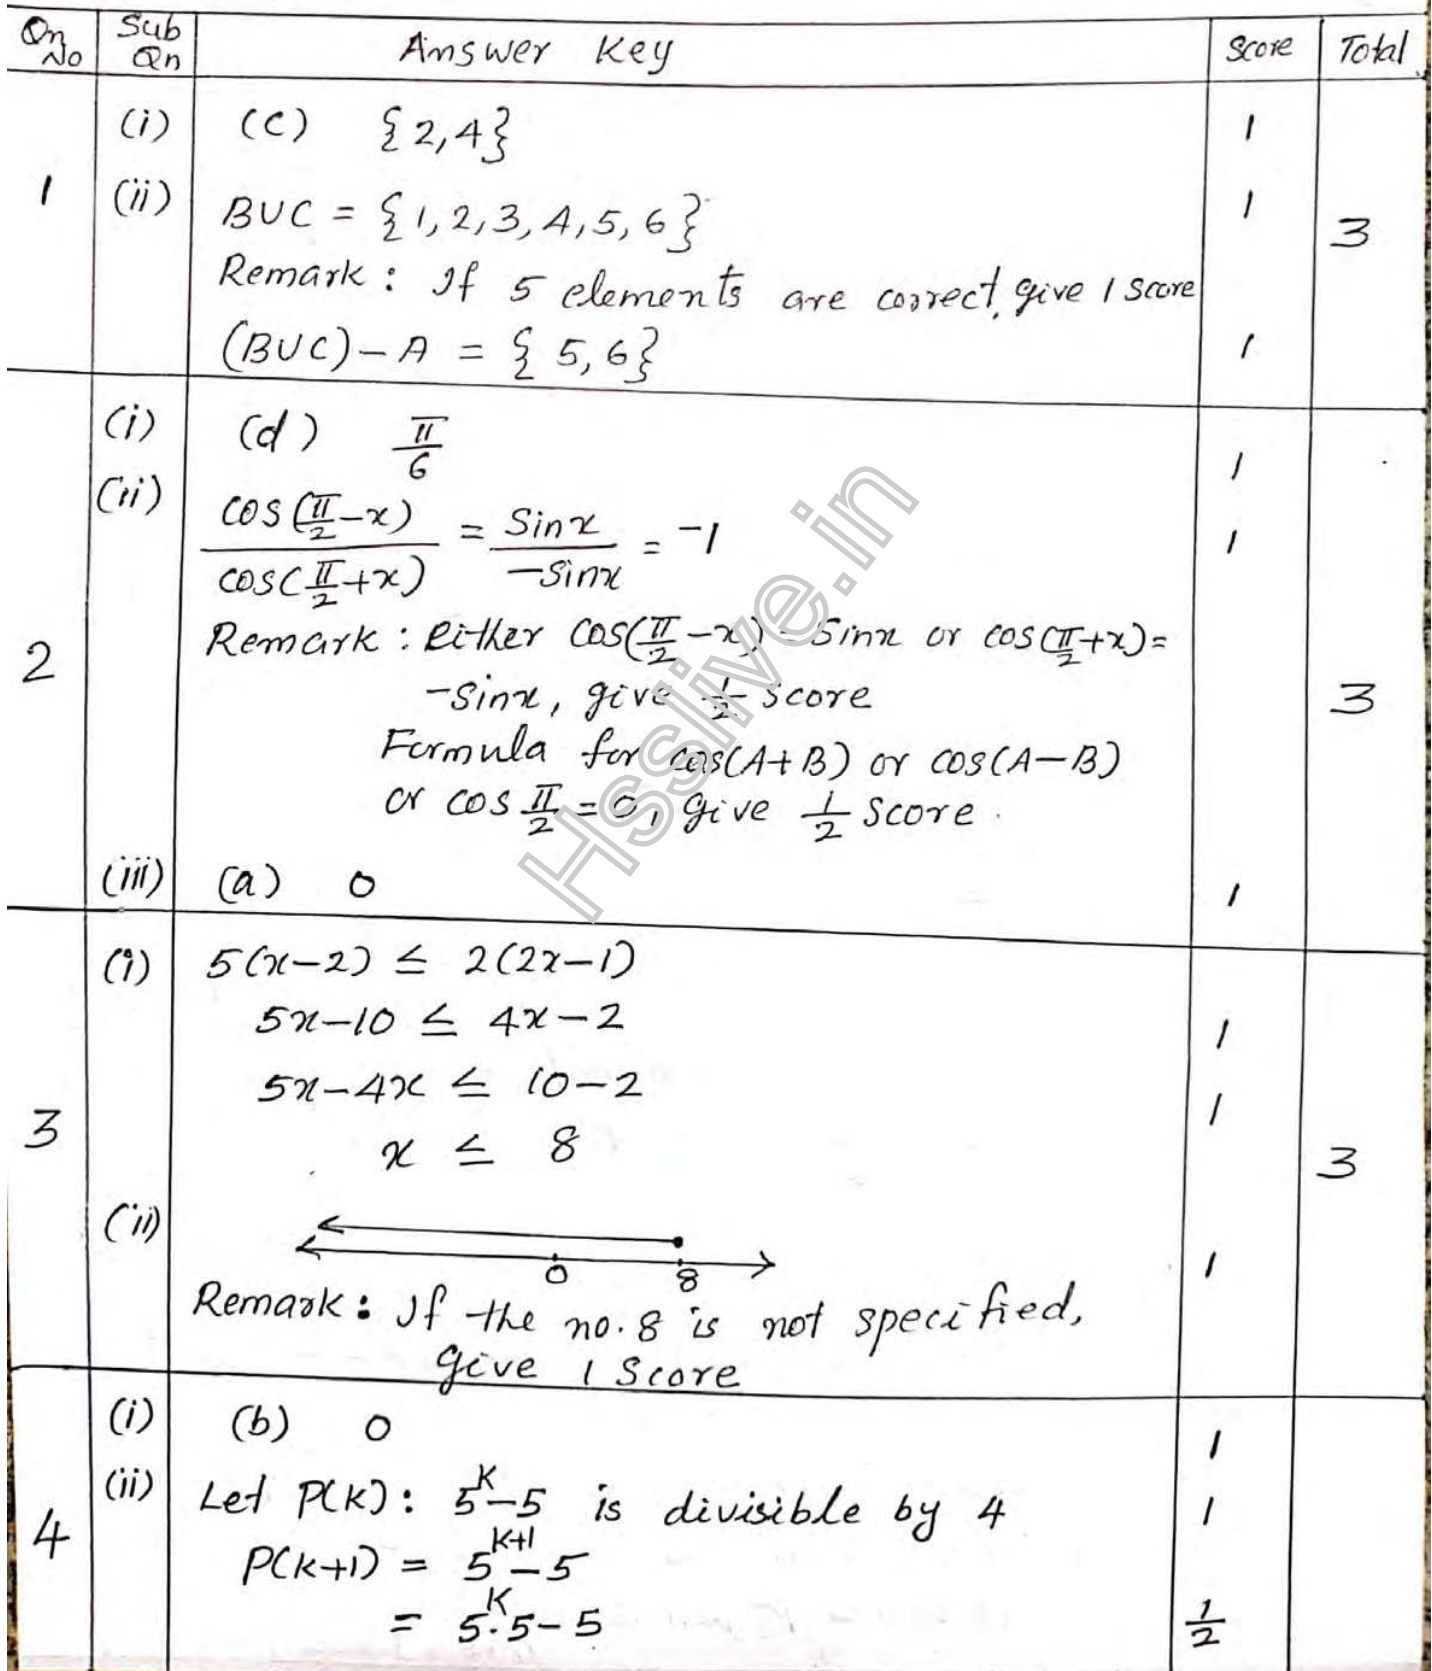 Qn No | Sub Qn | Answer Key | Score | Total
1 | (i) | (c) {2,4} | 1
(ii) | B∪C = {1,2,3,4,5,6} | 1 | 3
Remark : If 5 elements are correct, give 1 score
(B∪C)-A = {5,6} | 1
2 | (i) | (d) π/6 | 1
(ii) | cos(π/2-x) / cos(π/2+x) = Sinx / -Sinx = -1 | 1
Remark : Either cos(π/2-x) = Sinx or cos(π/2+x)=
-Sinx, give 1/2 score | 3
Formula for cos(A+B) or cos(A-B)
or cos π/2 = 0, give 1/2 Score.
(iii) | (a) 0 | 1
3 | (i) | 5(x-2) ≤ 2(2x-1)
5x-10 ≤ 4x-2 | 1
5x-4x ≤ 10-2 | 1
x ≤ 8 | 3
(ii) | 0 8 | 1
Remark : If the no. 8 is not specified,
give 1 Score
4 | (i) | (b) 0 | 1
(ii) | Let P(k): 5^k-5 is divisible by 4 | 1
P(k+1) = 5^k+1-5
= 5^k.5-5 | 1/2
Hsslive.in